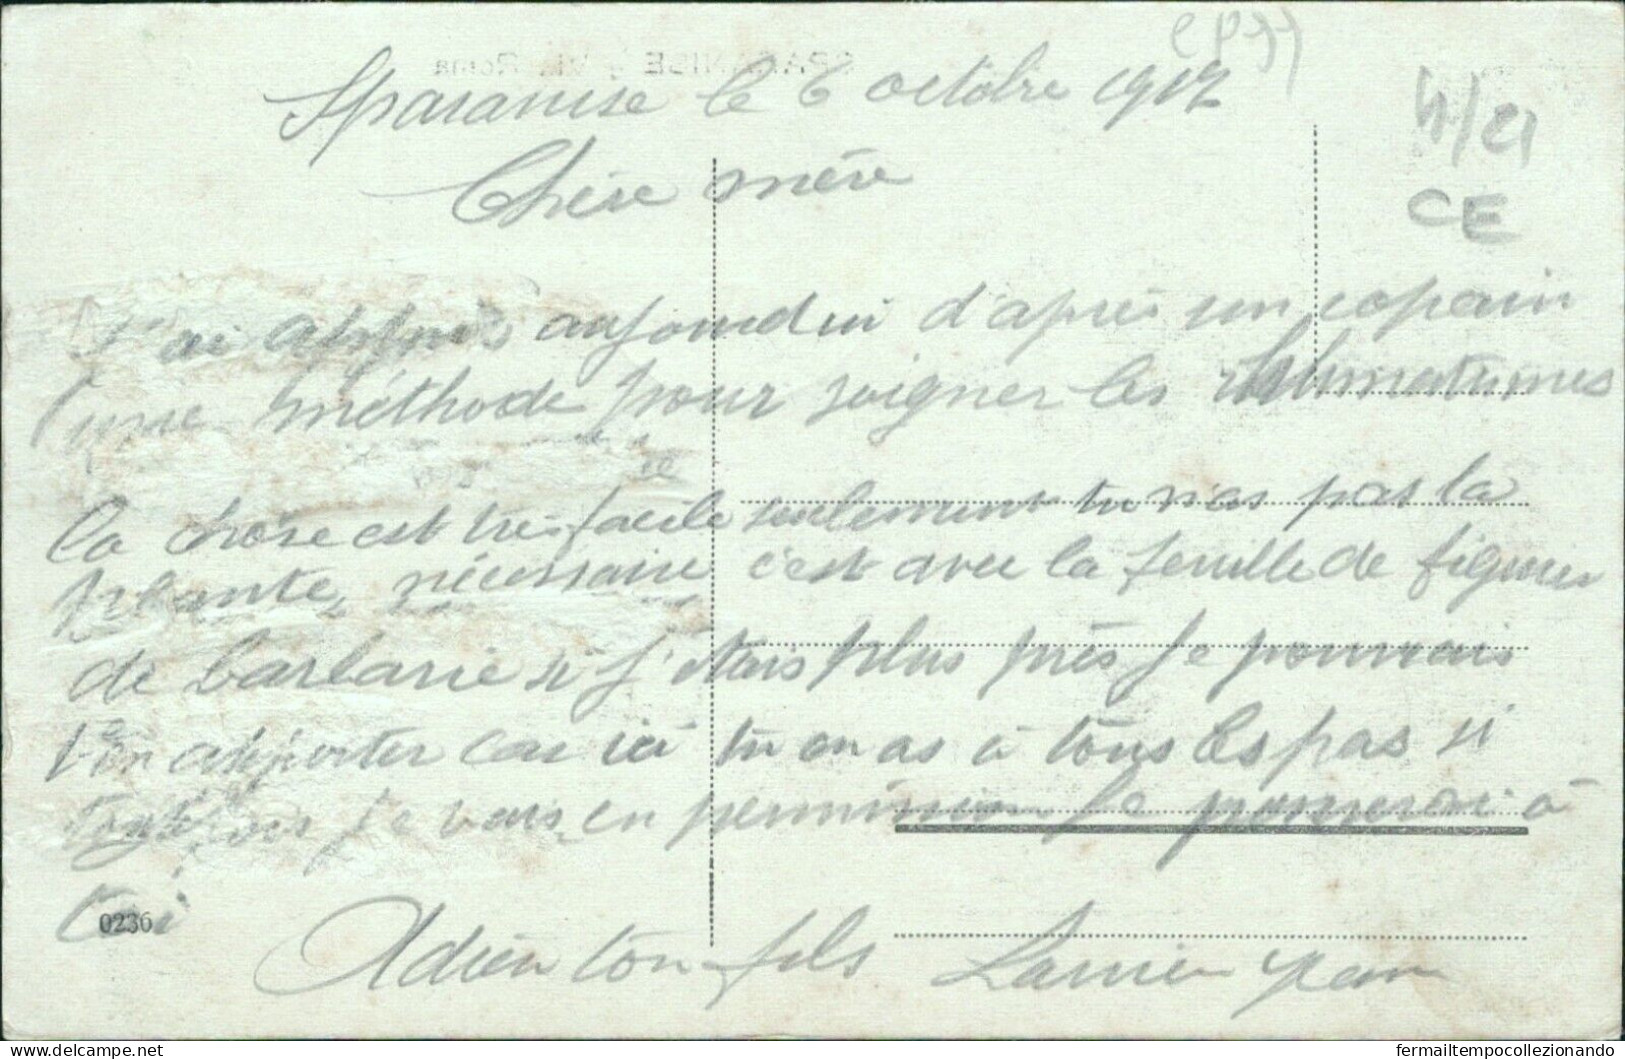 Sparanise le 6 octobre 1917
4/21
CE
Chère mère
J'ai appris aujourdui d'après un copain
une méthode pour soigner les rhumatismes
la chose est très facile seulement tu n'as pas la
plante nécessaire c'est avec la feuille de figuier
de barbarie si j'étais plus près je pourrais
t'en apporter car ici tu en as à tous les pas si
toutefois je vais en permission je penserai à
toi
0236
Adieu ton fils Jean
fermailtempocollezionando
www.delcampe.net